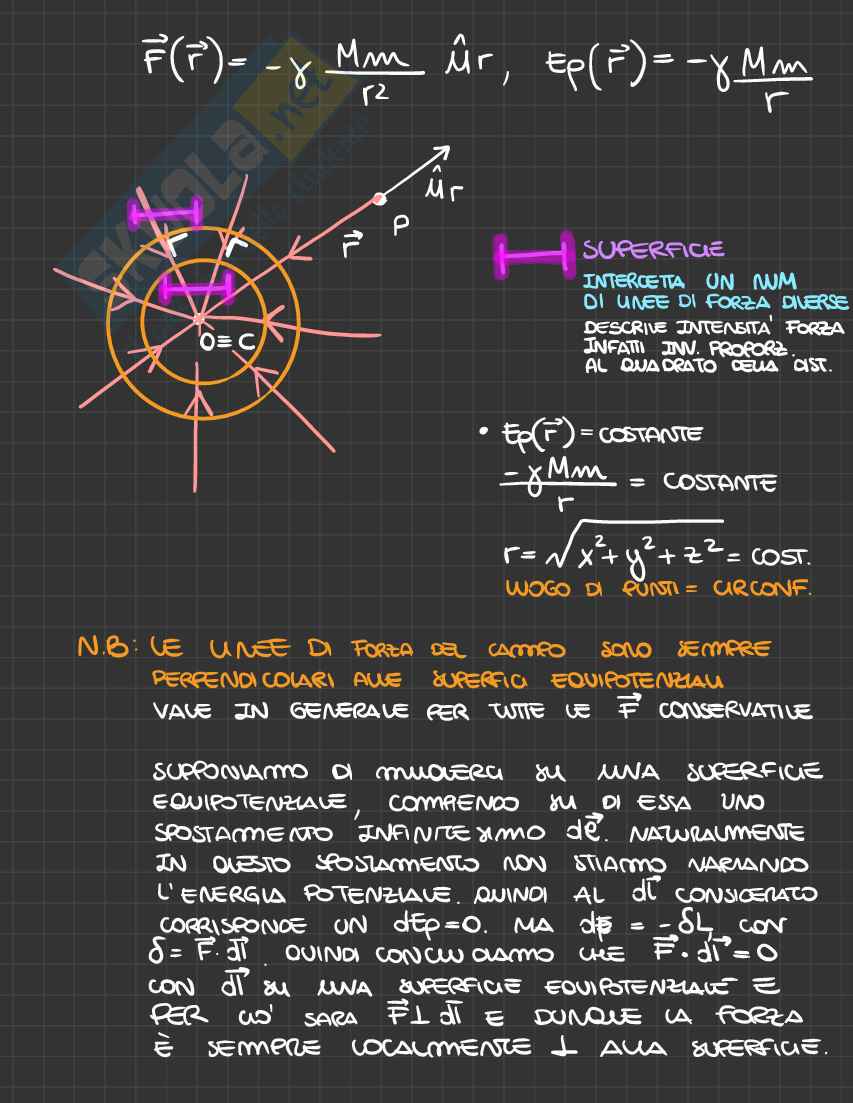 F⃗(r⃗) = -γ Mm/r² ûr, Ep(r⃗) = -γ Mm/r
SKUOLA.net
ûr
P
r⃗
r r
O≡C
SUPERFICIE
INTERCETTA UN NUM
DI LINEE DI FORZA DIVERSE
DESCRIVE INTENSITA' FORZA
INFATTI INV. PROPORZ.
AL QUADRATO DELLA DIST.
• Ep(r⃗) = COSTANTE
-γMm/r = COSTANTE
r = √(x²+y²+z²) = COST.
LUOGO DI PUNTI = CIRCONF.
N.B: LE LINEE DI FORZA DEL CAMPO SONO SEMPRE
PERPENDICOLARI ALLE SUPERFICI EQUIPOTENZIALI
VALE IN GENERALE PER TUTTE LE F⃗ CONSERVATILE
SUPPONIAMO DI MUOVERCI SU UNA SUPERFICIE
EQUIPOTENZIALE, COMPIENDO SU DI ESSA UNO
SPOSTAMENTO INFINITESIMO dℓ⃗. NATURALMENTE
IN QUESTO SPOSTAMENTO NON STIAMO VARIANDO
L'ENERGIA POTENZIALE. QUINDI AL dl⃗ CONSIDERATO
CORRISPONDE UN dEp=0. MA = -δL, CON
δ = F⃗·dl⃗. QUINDI CONCLUDIAMO CHE F⃗·dl⃗=0
CON dl⃗ SU UNA SUPERFICIE EQUIPOTENZIALE E
PER CIO' SARA F⃗⊥dl⃗ E DUNQUE LA FORZA
È SEMPRE LOCALMENTE ⊥ ALLA SUPERFICIE.